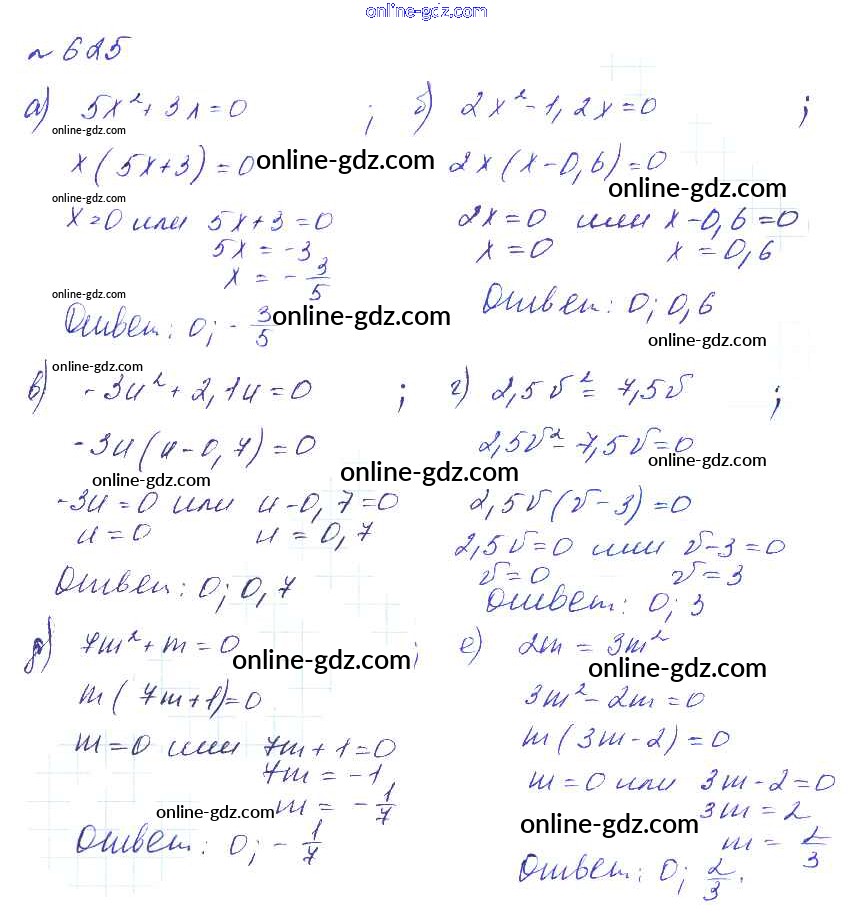 online-gdz.com
№ 625
а) 5x² + 3x = 0 ;
online-gdz.com
x(5x+3) = 0
online-gdz.com
online-gdz.com
x=0 или 5x+3 = 0
5x = -3
x = -3/5
online-gdz.com
Ответ: 0; -3/5
online-gdz.com
б) 2x² - 1,2x = 0 ;
2x(x-0,6) = 0
online-gdz.com
2x = 0 или x-0,6 = 0
x = 0 x = 0,6
Ответ: 0; 0,6
online-gdz.com
online-gdz.com
в) -3u² + 2,1u = 0 ;
-3u(u-0,7) = 0
online-gdz.com
online-gdz.com
-3u = 0 или u-0,7 = 0
u = 0 u = 0,7
Ответ: 0; 0,7
г) 2,5v² = 7,5v ;
2,5v² - 7,5v = 0
online-gdz.com
2,5v(v-3) = 0
2,5v = 0 или v-3 = 0
v = 0 v = 3
Ответ: 0; 3
д) 7m² + m = 0 ;
online-gdz.com
m(7m+1) = 0
m = 0 или 7m+1 = 0
7m = -1
m = -1/7
online-gdz.com
Ответ: 0; -1/7
е) 2m = 3m²
online-gdz.com
3m² - 2m = 0
m(3m-2) = 0
m = 0 или 3m-2 = 0
3m = 2
online-gdz.com
m = 2/3
Ответ: 0; 2/3.